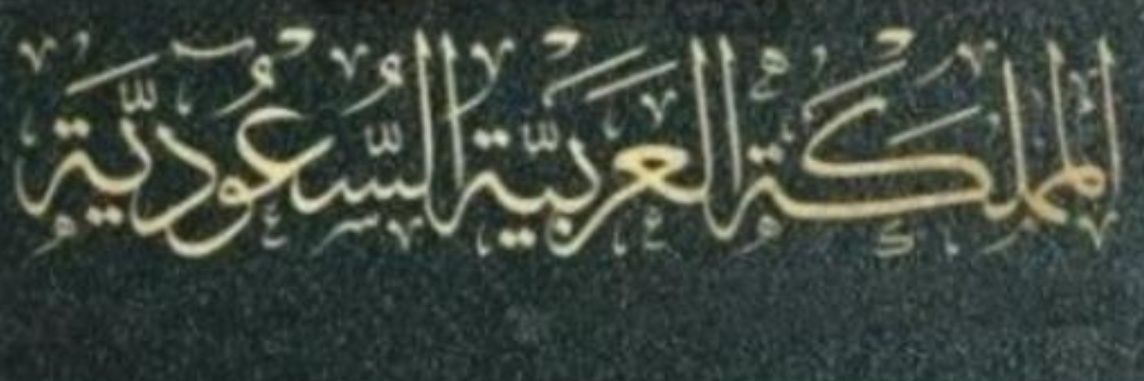 المملكة العربيّة السّعُوديّة